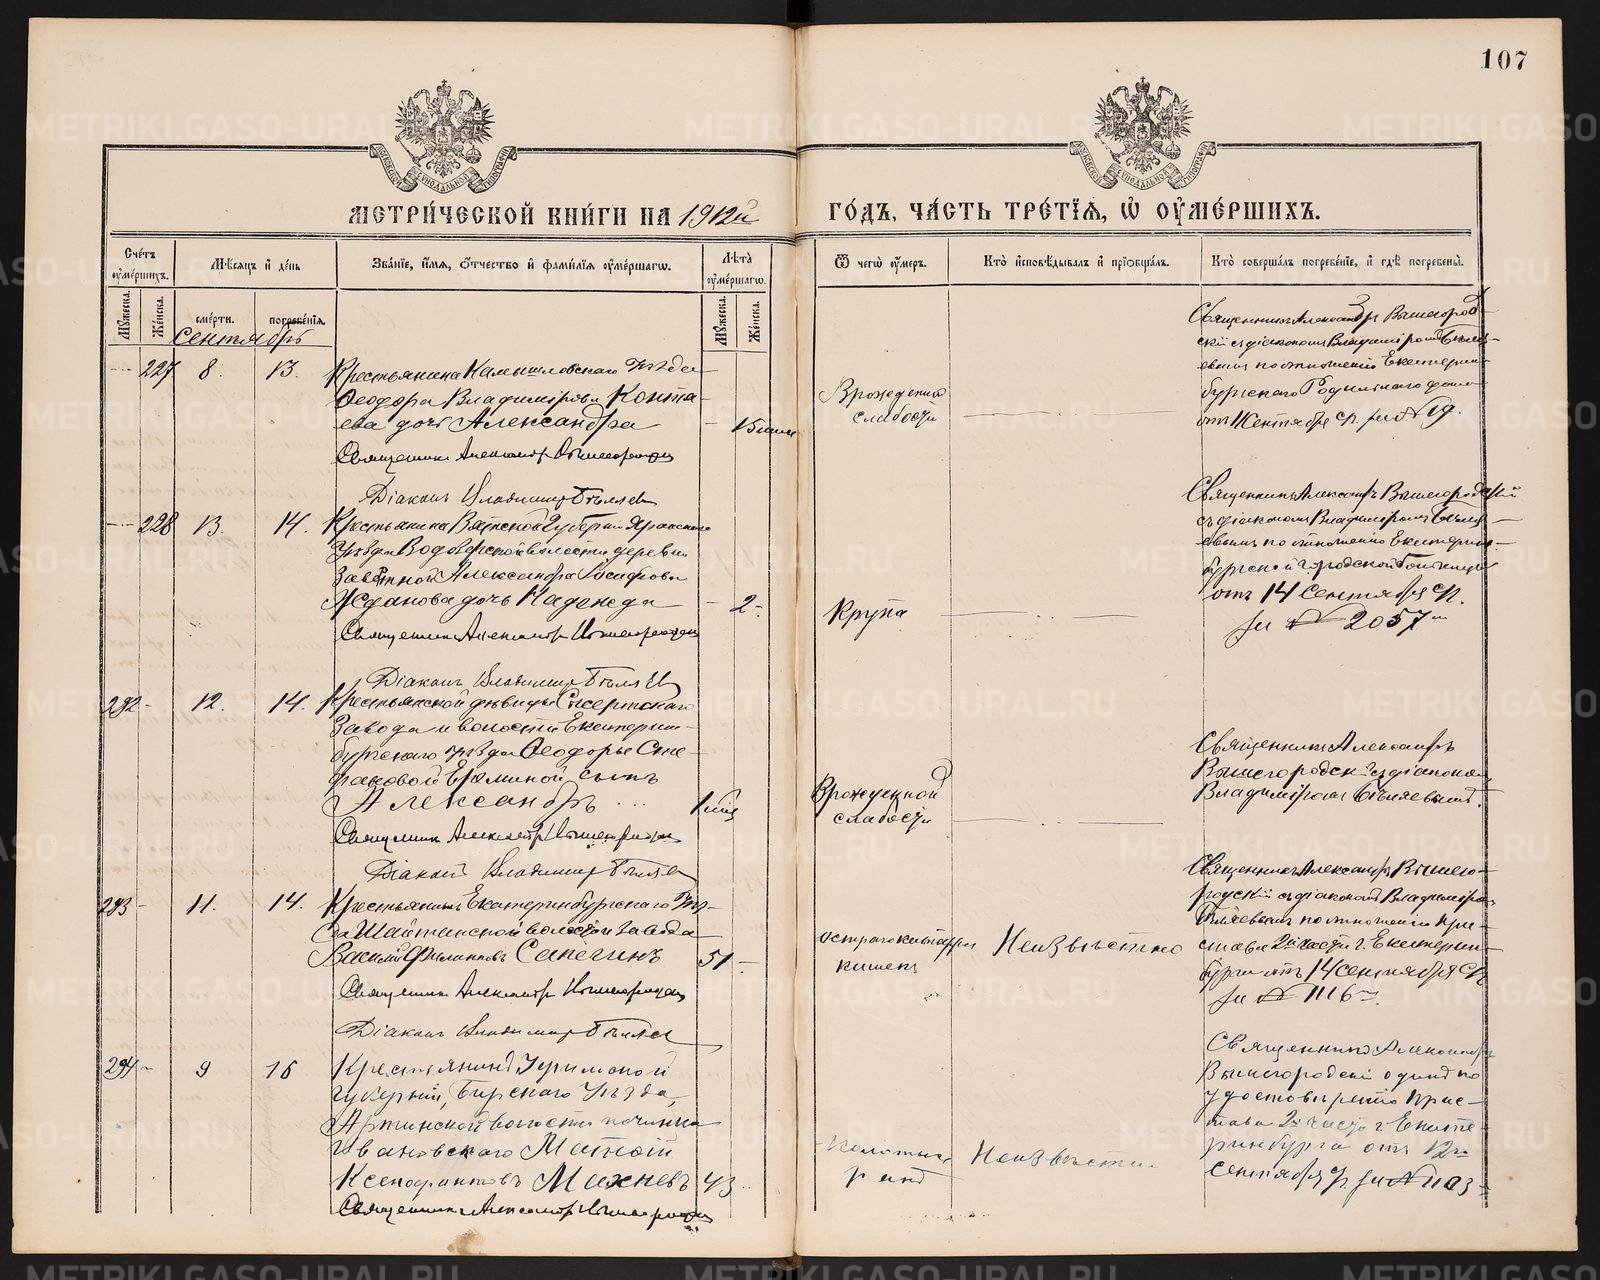 107
МЕТРИ́ЧЕСКОЙ КНИ́ГИ НА 1912й
ГО́ДЪ, ЧА́СТЬ ТРЕ́ТЇѦ, Ѡ҆ ОУ҆МЕ́РШИХЪ.
Сче́тъ оу҆ме́ршихъ.
Мѣ́сяцъ и҆ де́нь
Зва́нїе, и҆́мѧ, ѻ҆́тчество и҆ фами́лїѧ оу҆ме́ршагѡ.
Лѣ́та оу҆ме́ршагѡ.
Ѿ чегѡ̀ оу҆́меръ.
Кто̀ и҆сповѣ́дывалъ и҆ прїѡбща́лъ.
Кто̀ соверша́лъ погребе́нїе, и҆ гдѣ̀ погребены̀.
Мꙋ́жеска.
Же́нска.
сме́рти.
погребе́нїѧ.
Мꙋ́жеска.
Же́нска.
Сентябрь
227 8. 13.
Крестьянина Камышловскаго Уѣзда
Ѳеодора Владимірова Конта-
ева дочь Александра
Священникъ Александръ Вышегородскій
Діаконъ Владимиръ Бѣляевъ
Врожденна
слабости
Священникъ Александръ Вышеродскій
скій съ діакономъ Владиміромъ Бѣля-
евымъ по отношенію Екатерин-
бургскаго Родильнаго дома
228 13. 14.
Крестьянина Вятской Губерніи Яранскаго
Уѣзда Водозерской волости деревни
Александра
Жданова дочь Надежда 2
Священникъ Александръ Вышегородскій
Діаконъ Владимиръ Бѣляевъ
Крупа
Священникъ Александръ Вышегородскій
съ діакономъ Владиміромъ Бѣля-
евымъ по отношенію Екатерин-
бургской городской больницы
отъ 14 Сентября
за № 2057
292 12. 14.
Крестьянской дѣвицы Сысертскаго
Завода и волости Екатерин-
бургскаго уѣзда Ѳеодоры Сте-
фановой сынъ
Александръ
Священникъ Александръ Вышегородскій
Діаконъ Владимиръ Бѣляевъ
Врожденной
слабости
Священникъ Александръ
Вышегородскій съ діакономъ
Владиміромъ Бѣляевымъ.
293 11. 14.
Крестьянинъ Екатеринбургскаго Уѣз-
да Шайтанской волости завода
Василій Филипповъ Сапегинъ 51
Священникъ Александръ Вышегородскій
Діаконъ Владимиръ Бѣляевъ
Остраго катарра
кишекъ
Неизвѣстно
Священникъ Александръ Вышего-
родскій съ діакономъ Владиміромъ
Бѣляевымъ по отношенію при-
става 2й части г. Екатерин-
бурга отъ 14 сентября
за № 1116
294 9 16
Крестьянинъ Уфимской
губерніи, Бирскаго Уѣзда,
Артинской волости починка
Ивановскаго
Ксенофонтовъ Михневъ 43
Священникъ Александръ Вышегородскій
Неизвѣстно
Священникъ Александръ
Вышегородскій одинъ по
удостовѣренію прис-
тава 2й части г. Екате-
ринбурга отъ 12го
сентября за № 1103